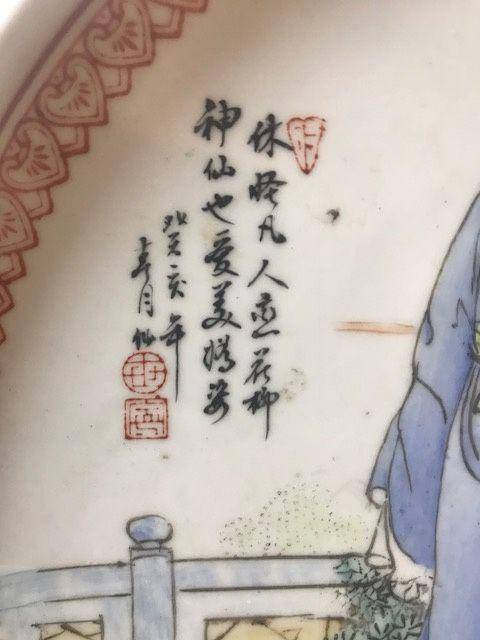 休怪凡人恋花柳
神仙也爱美嬌姿
癸亥年
月仙